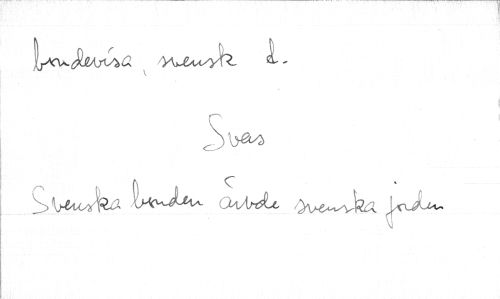 bondevisa, svensk d.
Svas
Svenska bonden ärvde svenska jorden